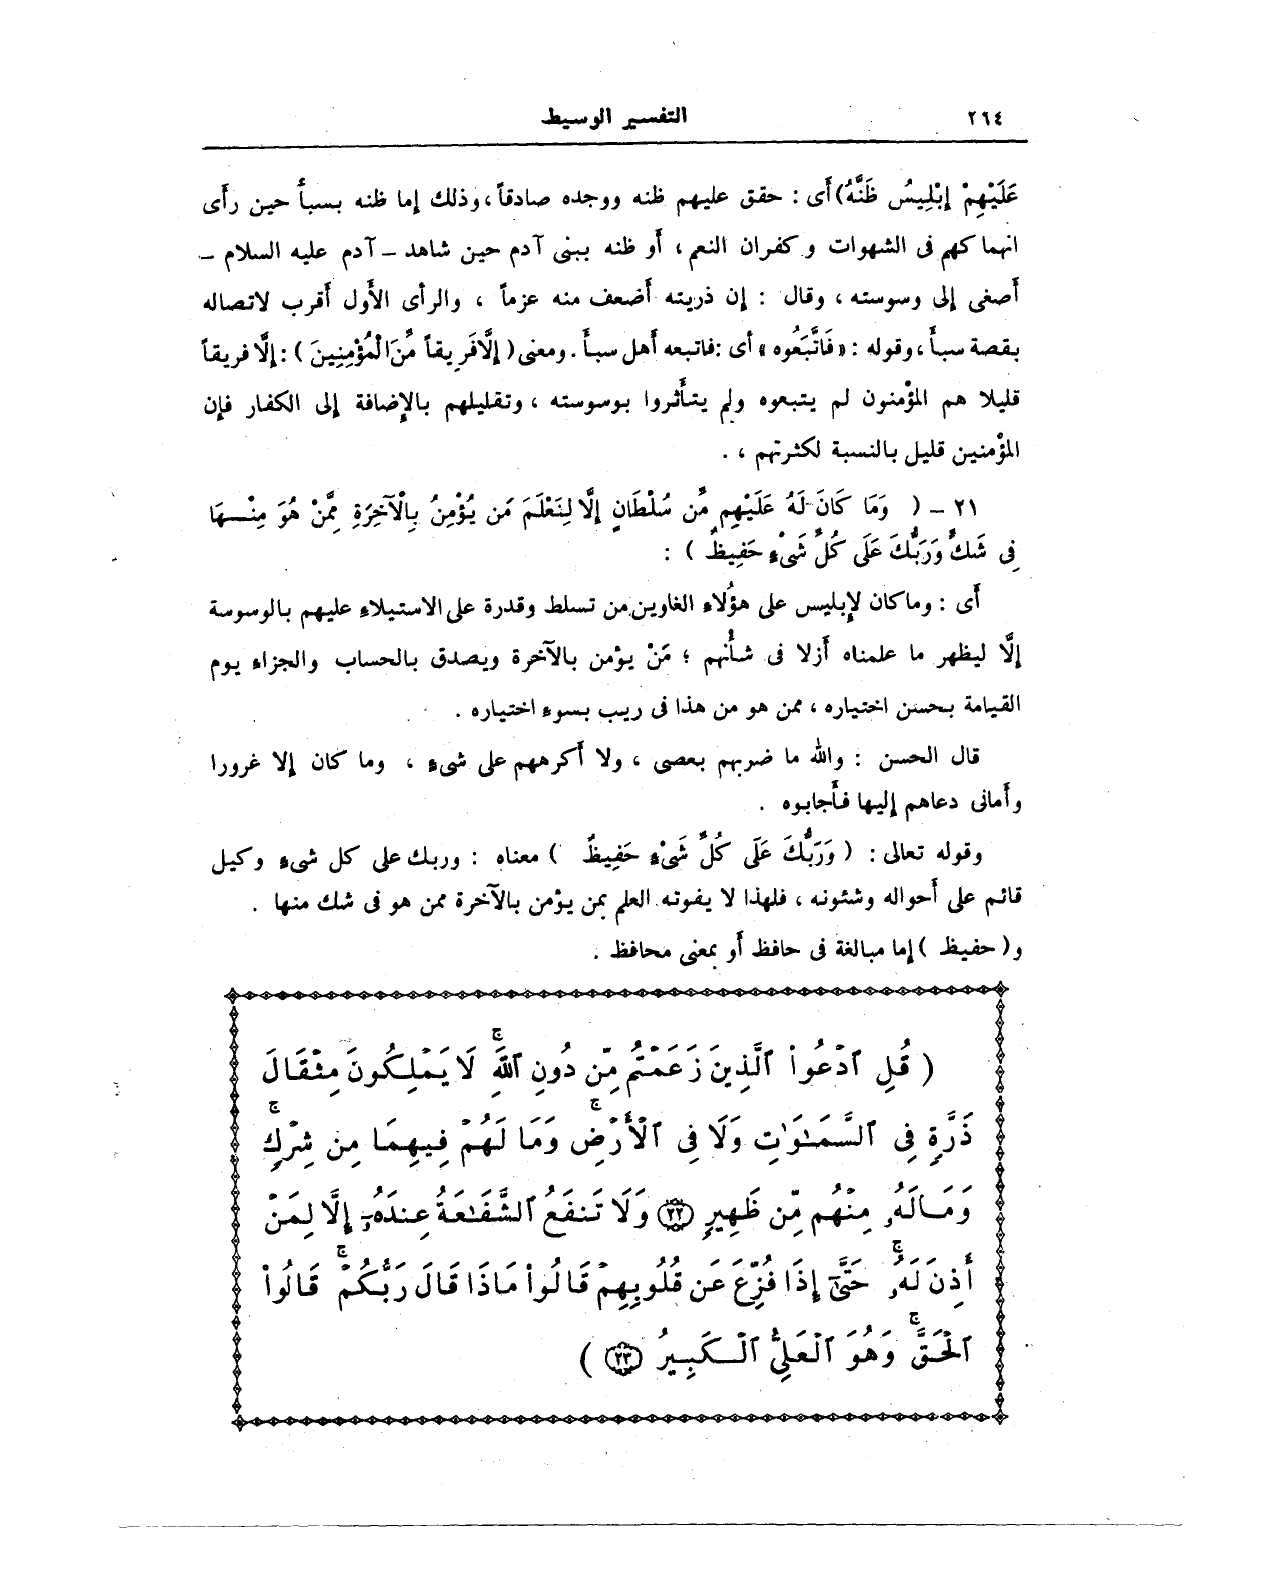 ٢٦٤ التفسير الوسيط
عَلَيْهِمْ إِبْلِيسُ ظَنَّهُ) أَى : حقق عليهم ظنه ووجده صادقاً ، وذلك إما ظنه بسبأ حين رأَى
انهماكهم فى الشهوات وكفران النعم ، أَو ظنه ببنى آدم حين شاهد – آدم عليه السلام –
أَصغى إلى وسوسته ، وقال : إن ذريته أَضعف منه عزماً ، والرأى الأَول أَقرب لاتصاله
بقصة سبأَ ، وقوله : « فَاتَّبَعُوه » أى : فاتبعه أهل سبأَ . ومعنى ( إِلَّا فَرِيقاً مِّنَ الْمُؤْمِنِينَ ) : إلَّا فريقاً
قليلا هم المؤْمنون لم يتبعوه ولم يتأَثروا بوسوسته ، وتقليلهم بالإِضافة إلى الكفار فإن
المؤْمنين قليل بالنسبة لكثرتهم ، .
٢١ – ( وَمَا كَانَ لَهُ عَلَيْهِم مِّن سُلْطَانٍ إِلَّا لِنَعْلَمَ مَن يُؤْمِنُ بِالْآخِرَةِ مِمَّنْ هُوَ مِنْـهَا
فِى شَكٍّ وَرَبُّكَ عَلَى كُلِّ شَىْءٍ حَفِيظٌ ) :
أَى : وما كان لإِبليس على هؤُلاء الغاوين من تسلط وقدرة على الاستيلاء عليهم بالوسوسة
إلَّا ليظهر ما علمناه أَزلا فى شأْنهم ؛ مَنْ يؤمن بالآخرة ويصدق بالحساب والجزاء يوم
القيامة بحسن اختياره ، ممن هو من هذا فى ريب بسوء اختياره .
قال الحسن : والله ما ضربهم بعصى ، ولا أَكرههم على شىء ، وما كان إلا غرورا
وأَمانى دعاهم إليها فأَجابوه .
وقوله تعالى : ( وَرَبُّكَ عَلَى كُلِّ شَىْءٍ حَفِيظٌ ) معناه : وربك على كل شىء وكيل
قائم على أَحواله وشئونه ، فلهذا لا يفوته العلم بمن يؤمن بالآخرة ممن هو فى شك منها .
و ( حفيظ ) إما مبالغة فى حافظ أَو بمعنى محافظ .
( قُلِ ٱدْعُوا۟ ٱلَّذِينَ زَعَمْتُم مِّن دُونِ ٱللَّهِ ۚ لَا يَمْلِكُونَ مِثْقَالَ
ذَرَّةٍ فِى ٱلسَّمَـٰوَٰتِ وَلَا فِى ٱلْأَرْضِ ۚ وَمَا لَهُمْ فِيهِمَا مِن شِرْكٍ ۚ
وَمَا لَهُۥ مِنْهُم مِّن ظَهِيرٍ ﴿٢٢﴾ وَلَا تَنفَعُ ٱلشَّفَـٰعَةُ عِندَهُۥٓ إِلَّا لِمَنْ
أَذِنَ لَهُۥ ۚ حَتَّىٰٓ إِذَا فُزِّعَ عَن قُلُوبِهِمْ قَالُوا۟ مَاذَا قَالَ رَبُّكُمْ ۚ قَالُوا۟
ٱلْحَقَّ ۚ وَهُوَ ٱلْعَلِىُّ ٱلْكَبِيرُ ﴿٢٣﴾ )